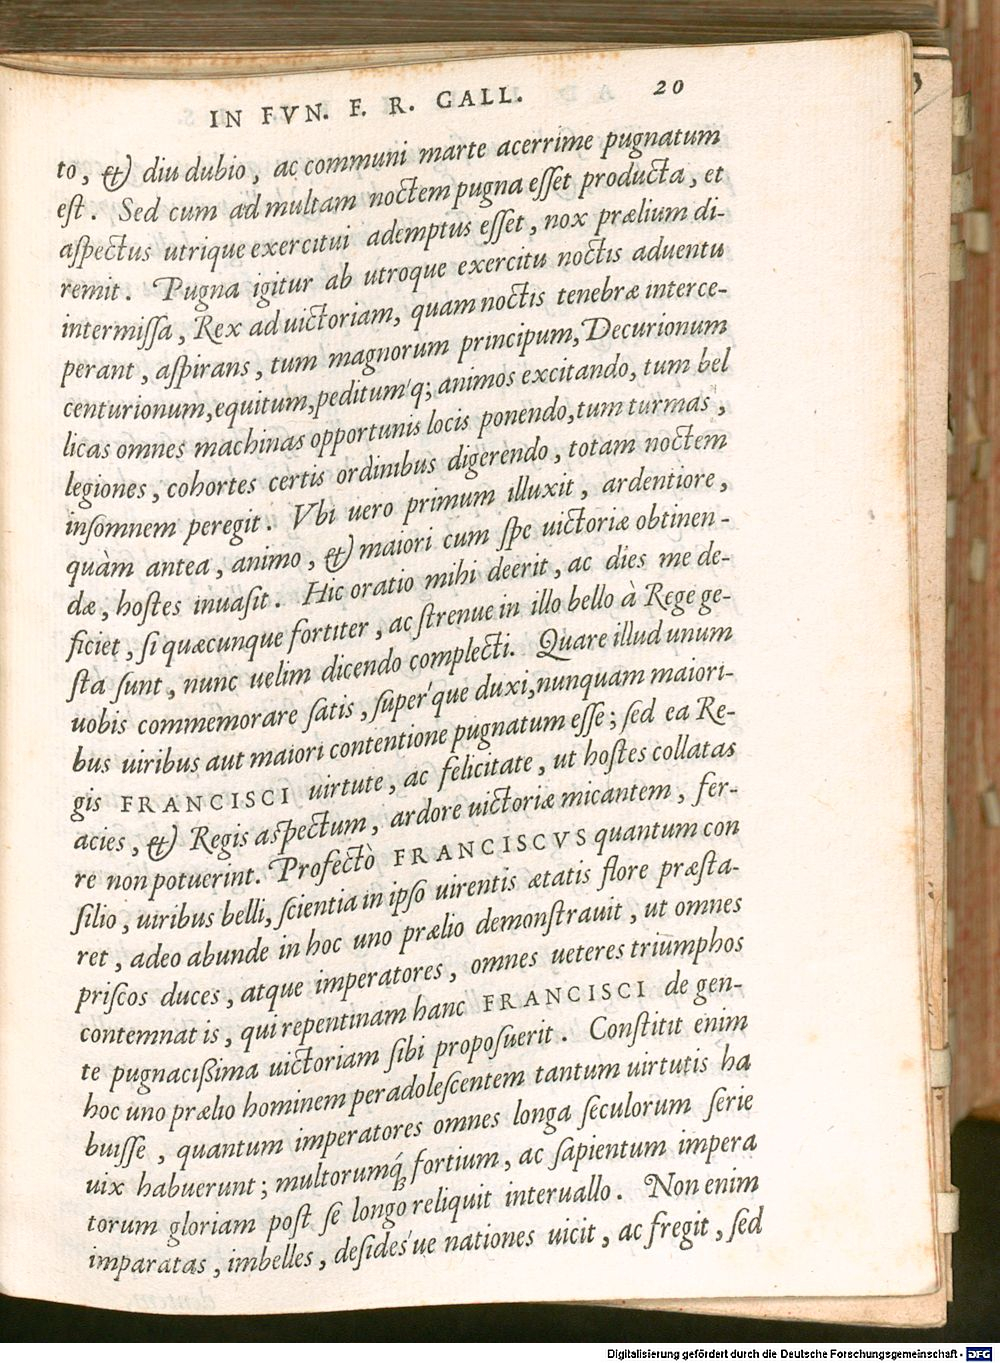 IN FVN. F. R. GALL. 20
to, & diu dubio, ac communi marte acerrime pugnatum
est. Sed cum ad multam noctem pugna esset producta, et
aspectus utrique exercitui ademptus esset, nox prælium di-
remit. Pugna igitur ab utroque exercitu noctis aduentu
intermissa, Rex ad uictoriam, quam noctis tenebræ interce-
perant, aspirans, tum magnorum principum, Decurionum
centurionum, equitum, peditum'q; animos excitando, tum bel
licas omnes machinas opportunis locis ponendo, tum turmas,
legiones, cohortes certis ordinibus digerendo, totam noctem
insomnem peregit. Vbi uero primum illuxit, ardentiore,
quàm antea, animo, & maiori cum spe uictoriæ obtinen-
dæ, hostes inuasit. Hic oratio mihi deerit, ac dies me de-
ficiet, si quæcunque fortiter, ac strenue in illo bello à Rege ge-
sta sunt, nunc uelim dicendo complecti. Quare illud unum
uobis commemorare satis, super'que duxi, nunquam maiori-
bus uiribus aut maiori contentione pugnatum esse; sed ea Re-
gis FRANCISCI uirtute, ac felicitate, ut hostes collatas
acies, & Regis aspectum, ardore uictoriæ micantem, fer-
re non potuerint. Profectò FRANCISCVS quantum con
silio, uiribus belli, scientia in ipso uirentis ætatis flore præsta-
ret, adeo abunde in hoc uno prælio demonstrauit, ut omnes
priscos duces, atque imperatores, omnes ueteres triumphos
contemnat is, qui repentinam hanc FRANCISCI de gen-
te pugnacissima uictoriam sibi proposuerit. Constitit enim
hoc uno prælio hominem peradolescentem tantum uirtutis ha
buisse, quantum imperatores omnes longa seculorum serie
uix habuerunt; multorumq́; fortium, ac sapientum impera
torum gloriam post se longo reliquit interuallo. Non enim
imparatas, imbelles, desides'ue nationes uicit, ac fregit, sed
Digitalisierung gefördert durch die Deutsche Forschungsgemeinschaft - DFG